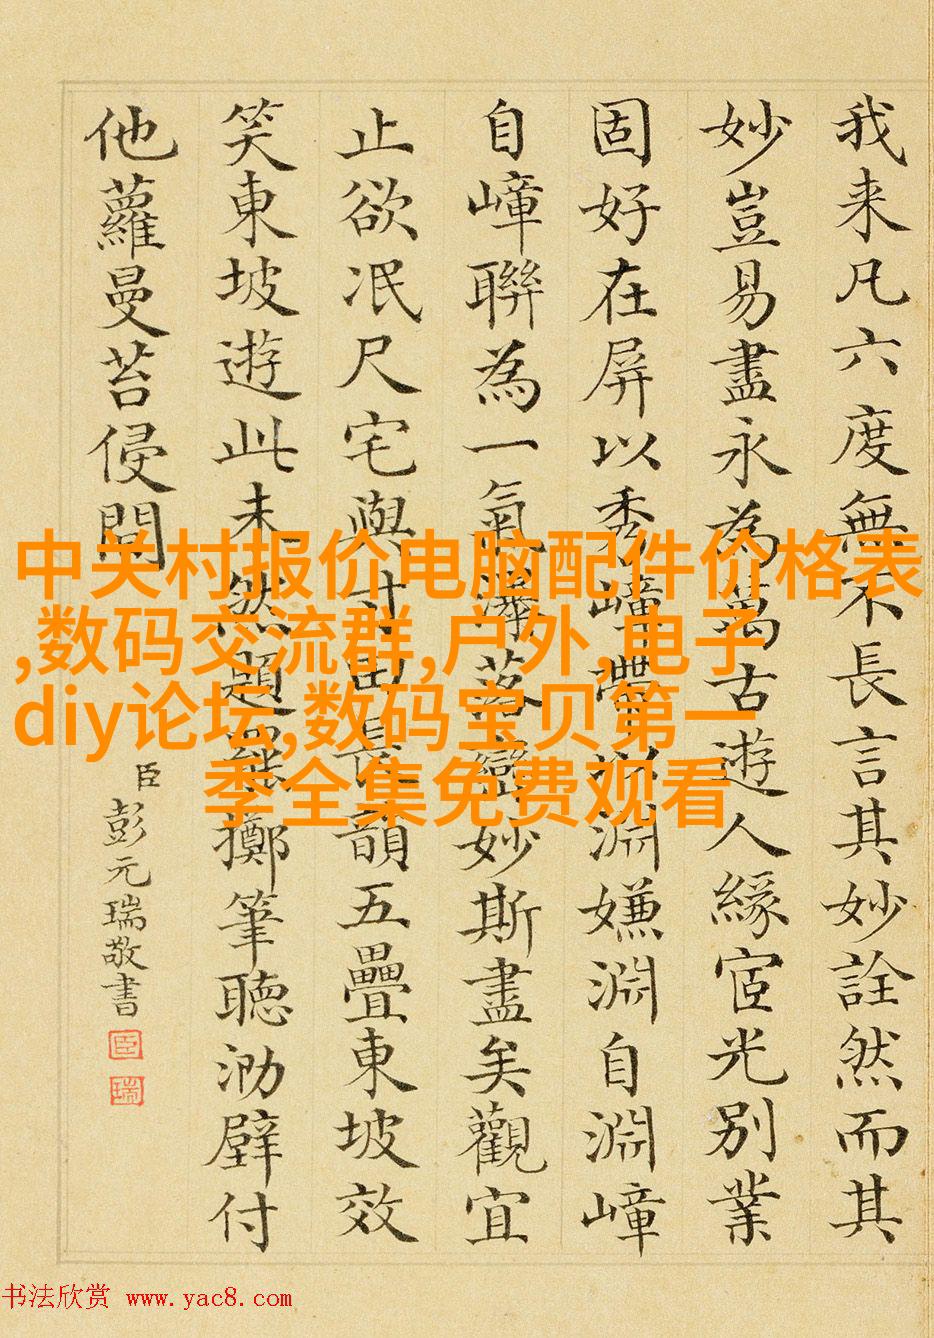 我来凡六度無不長言其妙詮然而其
妙豈易盡永為萬古遊人緣宧光別業
固好在屏以秀嶂淵嫌淵自淵嶂
自嶂聯為一氣落巒妙斯盡矣觀宜
止欲泯尺宅與寸田長韻五疊東坡效
笑東坡遊此未然題罷擲筆聽泐壁付
他蘿曼苔侵間
臣彭元瑞敬書
臣
瑞
中关村报价电脑配件价格表
,数码交流群,户外,电子
diy论坛,数码宝贝第一
季全集免费观看
书法欣赏 www.yac8.com